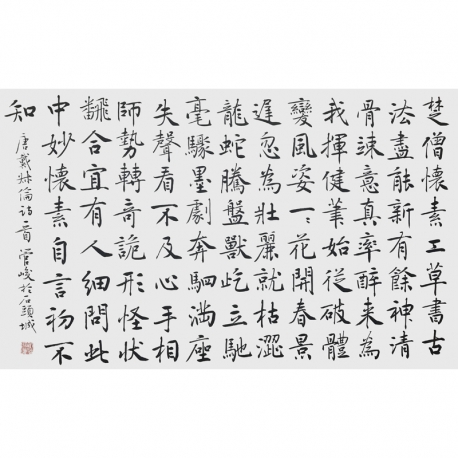 楚僧懷素工草書古
法盡能新有餘神清
骨竦意真率醉來為
我揮健筆始從破體
變風姿一〻花開春景
遲忽為壯麗就枯澀
龍蛇騰盤獸屹立馳
毫驟墨劇奔駟滿座
失聲看不及心手相
師勢轉奇詭形怪狀
飜合宜有人細問此
中妙懷素自言初不
知
唐戴叔倫詩一首 管峻於石頭城